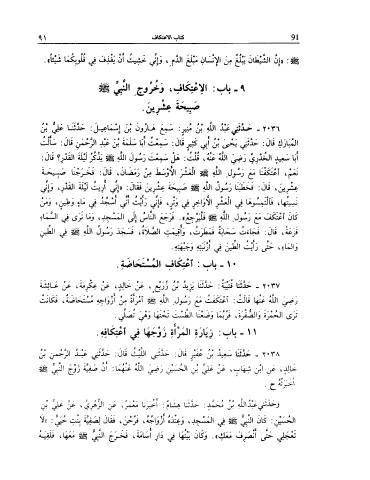 ٩١ كتاب الاعتكاف 91
ﷺ: «إِنَّ الشَّيْطَانَ يَبْلُغُ مِنَ الْإِنْسَانِ مَبْلَغَ الدَّمِ، وَإِنِّي خَشِيتُ أَنْ يَقْذِفَ فِي قُلُوبِكُمَا شَيْئًا».
٩ - باب: الِاعْتِكَافِ، وَخُرُوجِ النَّبِيِّ ﷺ
صَبِيحَةَ عِشْرِينَ.
٢٠٣٦ - حَدَّثَنِي عَبْدُ اللَّهِ بْنُ مُنِيرٍ: سَمِعَ هَارُونَ بْنَ إِسْمَاعِيلَ: حَدَّثَنَا عَلِيُّ بْنُ
الْمُبَارَكِ قَالَ: حَدَّثَنِي يَحْيَى بْنُ أَبِي كَثِيرٍ قَالَ: سَمِعْتُ أَبَا سَلَمَةَ بْنَ عَبْدِ الرَّحْمَنِ قَالَ: سَأَلْتُ
أَبَا سَعِيدٍ الْخُدْرِيَّ رَضِيَ اللَّهُ عَنْهُ، قُلْتُ: هَلْ سَمِعْتَ رَسُولَ اللَّهِ ﷺ يَذْكُرُ لَيْلَةَ الْقَدْرِ؟ قَالَ:
نَعَمْ، اعْتَكَفْنَا مَعَ رَسُولِ اللَّهِ ﷺ الْعَشْرَ الْأَوْسَطَ مِنْ رَمَضَانَ، قَالَ: فَخَرَجْنَا صَبِيحَةَ
عِشْرِينَ، قَالَ: فَخَطَبَنَا رَسُولُ اللَّهِ ﷺ صَبِيحَةَ عِشْرِينَ فَقَالَ: «إِنِّي أُرِيتُ لَيْلَةَ الْقَدْرِ، وَإِنِّي
نَسِيتُهَا، فَالْتَمِسُوهَا فِي الْعَشْرِ الْأَوَاخِرِ فِي وَتْرٍ، فَإِنِّي رَأَيْتُ أَنِّي أَسْجُدُ فِي مَاءٍ وَطِينٍ، وَمَنْ
كَانَ اعْتَكَفَ مَعَ رَسُولِ اللَّهِ ﷺ فَلْيَرْجِعْ». فَرَجَعَ النَّاسُ إِلَى الْمَسْجِدِ، وَمَا نَرَى فِي السَّمَاءِ
قَزَعَةً، قَالَ: فَجَاءَتْ سَحَابَةٌ فَمَطَرَتْ، وَأُقِيمَتِ الصَّلَاةُ، فَسَجَدَ رَسُولُ اللَّهِ ﷺ فِي الطِّينِ
وَالْمَاءِ، حَتَّى رَأَيْتُ الطِّينَ فِي أَرْنَبَتِهِ وَجَبْهَتِهِ.
١٠ - باب: اعْتِكَافِ الْمُسْتَحَاضَةِ.
٢٠٣٧ - حَدَّثَنَا قُتَيْبَةُ: حَدَّثَنَا يَزِيدُ بْنُ زُرَيْعٍ، عَنْ خَالِدٍ، عَنْ عِكْرِمَةَ، عَنْ عَائِشَةَ
رَضِيَ اللَّهُ عَنْهَا قَالَتْ: اعْتَكَفَتْ مَعَ رَسُولِ اللَّهِ ﷺ امْرَأَةٌ مِنْ أَزْوَاجِهِ مُسْتَحَاضَةٌ، فَكَانَتْ
تَرَى الْحُمْرَةَ وَالصُّفْرَةَ، فَرُبَّمَا وَضَعْنَا الطَّسْتَ تَحْتَهَا وَهِيَ تُصَلِّي.
١١ - باب: زِيَارَةِ الْمَرْأَةِ زَوْجَهَا فِي اعْتِكَافِهِ.
٢٠٣٨ - حَدَّثَنَا سَعِيدُ بْنُ عُفَيْرٍ قَالَ: حَدَّثَنِي اللَّيْثُ قَالَ: حَدَّثَنِي عَبْدُ الرَّحْمَنِ بْنُ
خَالِدٍ، عَنِ ابْنِ شِهَابٍ، عَنْ عَلِيِّ بْنِ الْحُسَيْنِ رَضِيَ اللَّهُ عَنْهُمَا: أَنَّ صَفِيَّةَ زَوْجَ النَّبِيِّ ﷺ
أَخْبَرَتْهُ ح.
وحَدَّثَنِي عَبْدُ اللَّهِ بْنُ مُحَمَّدٍ: حَدَّثَنَا هِشَامٌ: أَخْبَرَنَا مَعْمَرٌ، عَنِ الزُّهْرِيِّ، عَنْ عَلِيِّ بْنِ
الْحُسَيْنِ: كَانَ النَّبِيُّ ﷺ فِي الْمَسْجِدِ، وَعِنْدَهُ أَزْوَاجُهُ، فَرُحْنَ، فَقَالَ لِصَفِيَّةَ بِنْتِ حُيَيٍّ: «لَا
تَعْجَلِي حَتَّى أَنْصَرِفَ مَعَكِ». وَكَانَ بَيْتُهَا فِي دَارِ أُسَامَةَ، فَخَرَجَ النَّبِيُّ ﷺ مَعَهَا، فَلَقِيَهُ